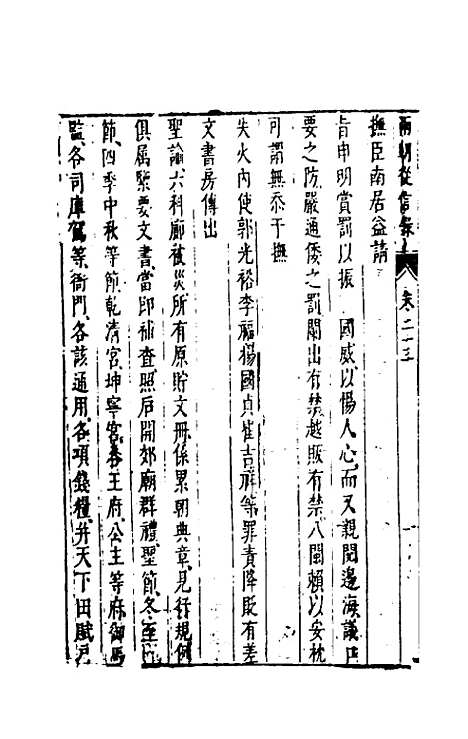 兩朝從信錄 卷二十三
撫臣南居益請
旨申明賞罰以振 國威以惕人心而又親閱邊海議戶
要之防嚴通倭之罰闌出有禁越販有禁八閩賴以安枕
可謂無忝于撫
失火內使郭光裕李福楊國貞崔吉祥等罪責降貶有差
文書房傳出
聖諭六科廊被災所有原貯文冊係累朝典章見行規例
俱屬緊要文書當即補查照后開郊廟群禮聖節冬至
節四季中秋等節乾清宮坤寧宮各王府公主等府御馬
監各司庫駕等衙門各該通用各項錢糧并天下田賦戶